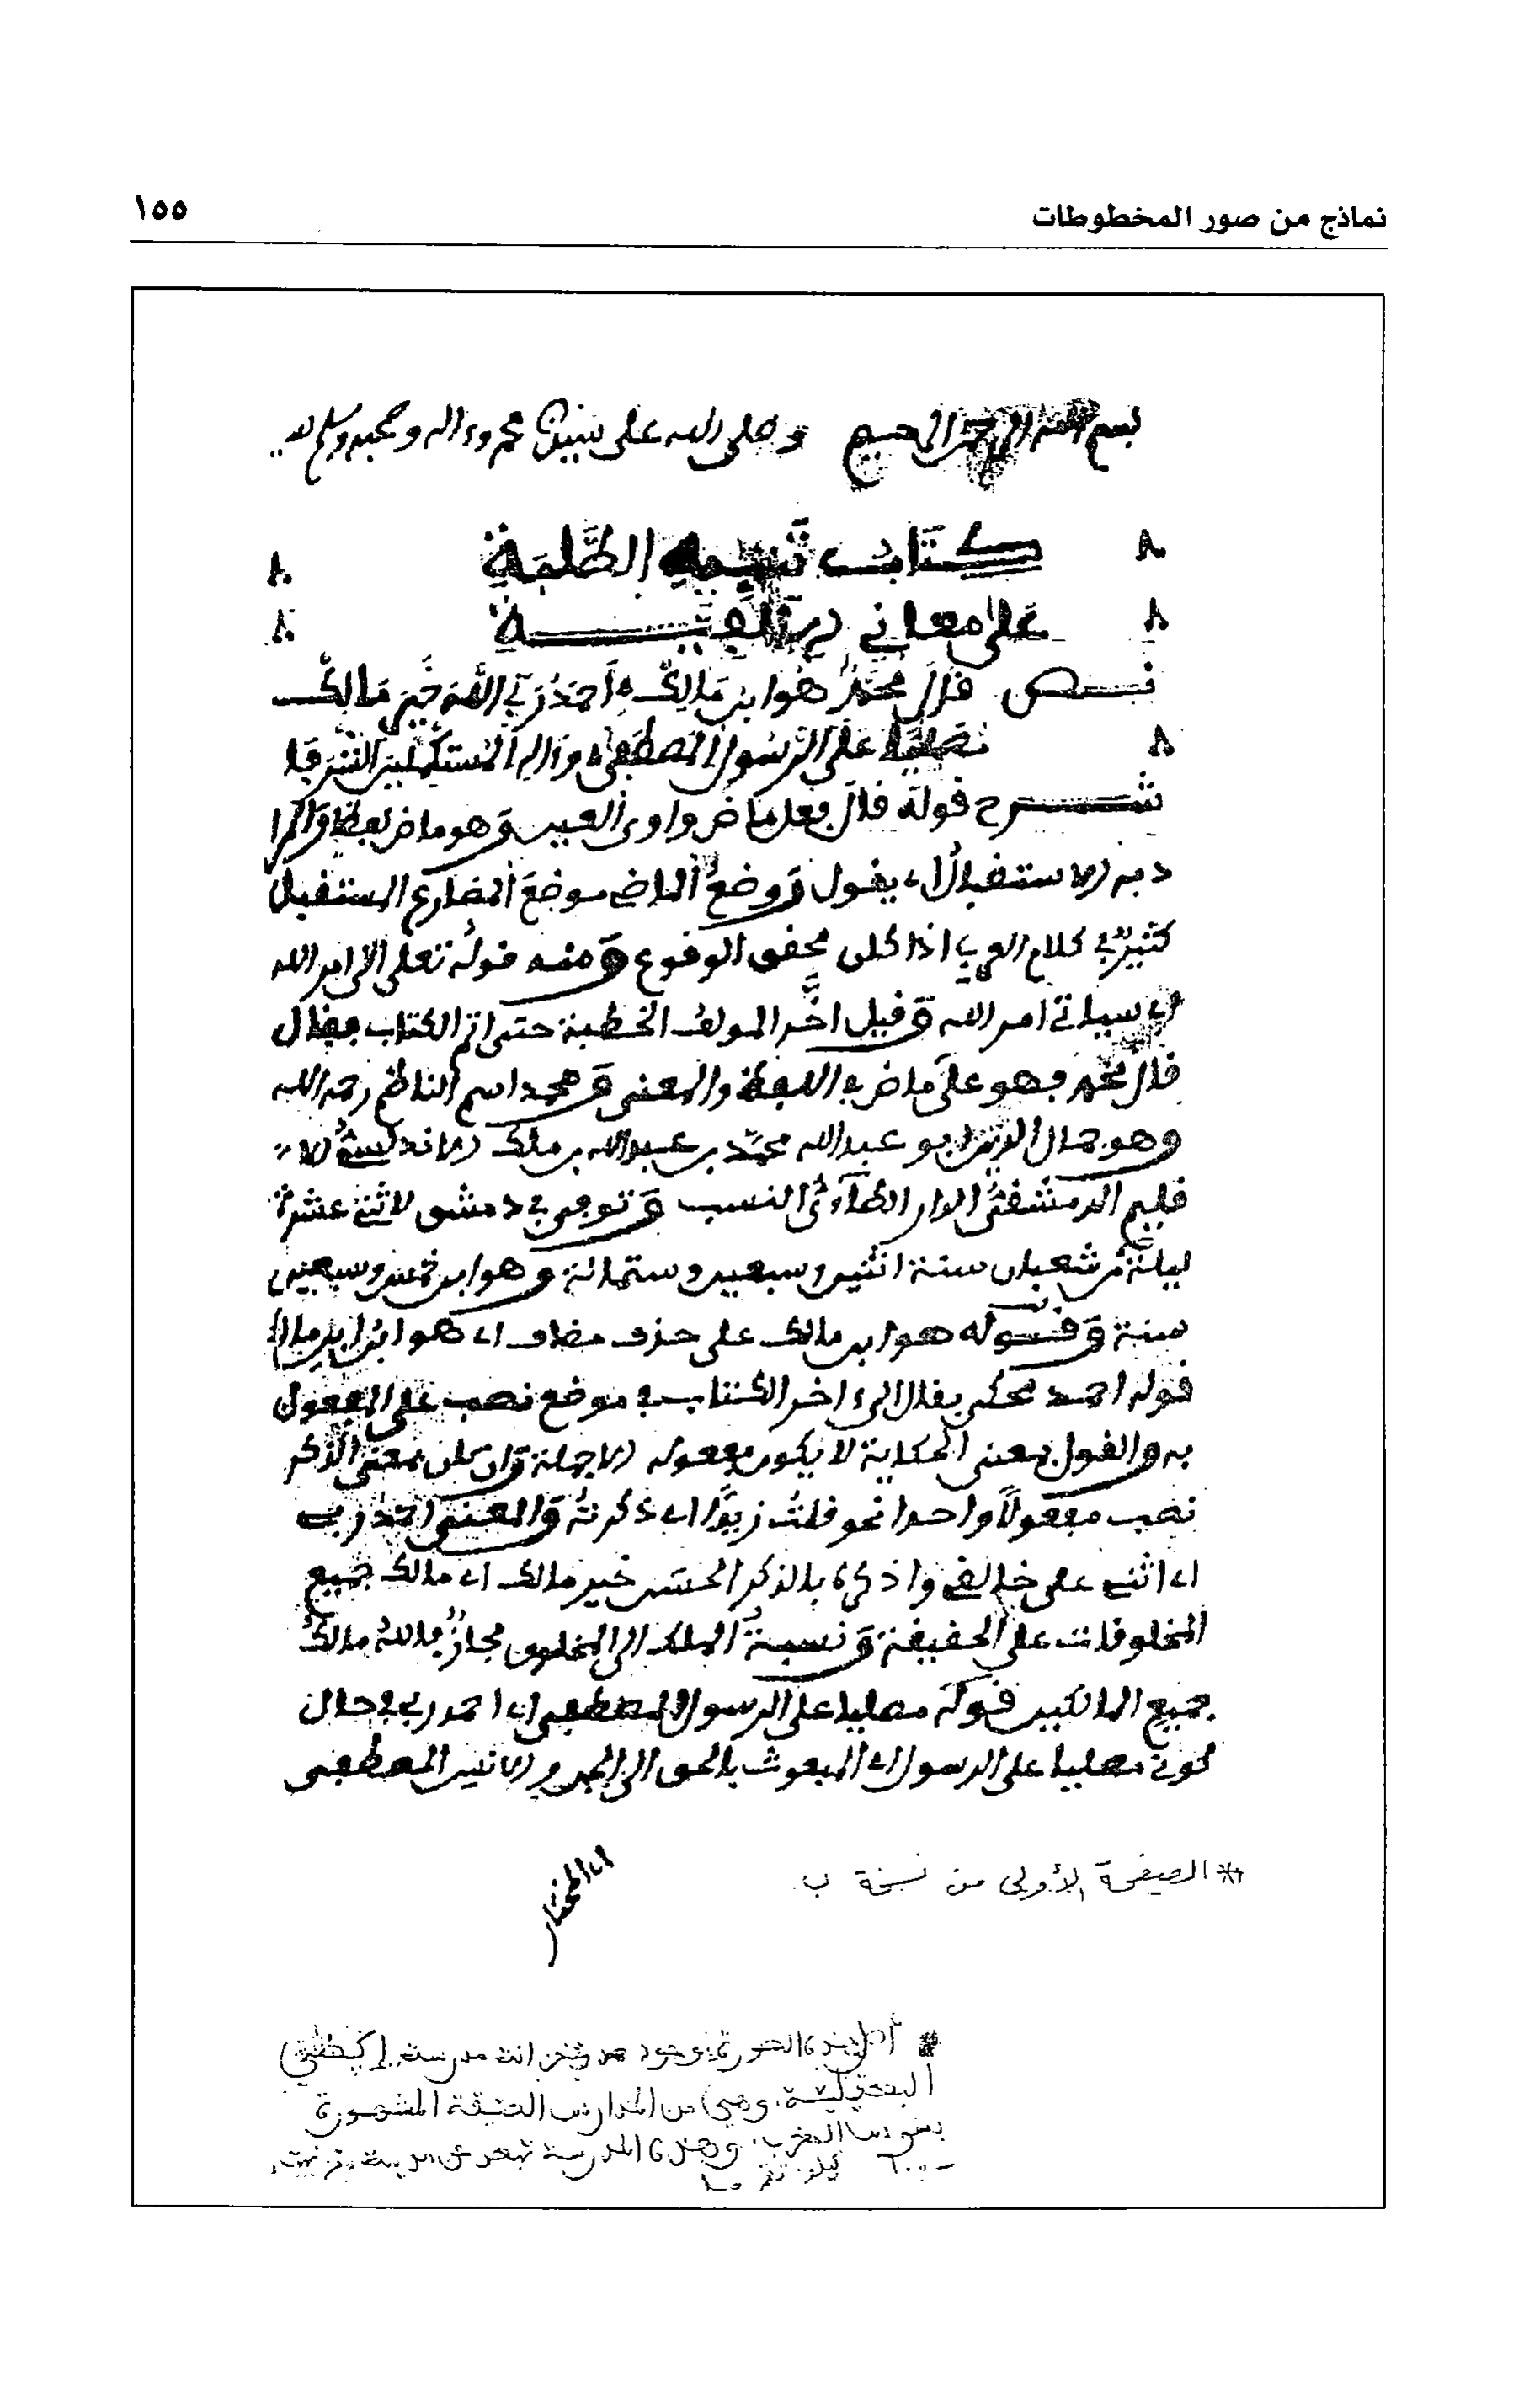 نماذج من صور المخطوطات
١٥٥
بسم الله الرحمن الرحيم وصلى الله على سيدنا محمد وءاله وصحبه وسلم
كتاب تنبيه الطلبة
على معاني الالفية
نص قال محمد هو ابن مالك احمد ربي الله خير مالك
مصليا على الرسول المصطفى وءاله المستكملين الشرفا
شرح قوله قال فعل ماض واوي العين وهو ماض لفظا والمرا
د به الاستقبال اي يقول ووضع الماضي موضع المضارع المستقبل
كثير في كلام العرب اذا كان محقق الوقوع ومنه قوله تعلى اتى امر الله
اي سياتي امر الله وقيل اخر المولف الخطبة حتى اتم الكتاب فقال
قال محمد فهو على ماض في اللفظ والمعنى ومحمد اسم الناظم رحمه الله
وهو جمال الدين ابو عبد الله محمد بن عبد الله بن ملك الاندلسي الا
قليم الدمشقي الدار الطاءي النسب وتوفي في دمشق لاثني عشرة
ليلة من شعبان سنة اثنين وسبعين وستمائة وهو ابن خمس وسبعين
سنة وقوله هو ابن مالك على حذف مضاف اي هو ابن ابن مالك
قوله احمد محكي بقال الى ءاخر الكتاب في موضع نصب على المفعول
به والقول بمعنى الحكاية لا يكون مفعوله الا جملة وان كان بمعنى الذكر
نصب مفعولا واحدا نحو قلت زيدا اي ذكرته والمعنى احمد ربي
اي اثني على خالقي واذكره بالذكر الحسن خير مالك اي مالك جميع
المخلوقات على الحقيقة ونسبة الملك الى المخلوق مجاز فالله مالك
جميع المالكين قوله مصليا على الرسول المصطفى اي احمد ربي في حال
كوني مصليا على الرسول اي المبعوث بالحق الى الجن والانس المصطفى
اي المختار
* الصفحة الأولى من نسخة ب
# أصل هذه الصورة موجود في خزانة مدرسة
وهي من المدارس العتيقة المشهورة
بسوس المغرب، وهذه المدرسة تبعد عن مدينة تزنيت
كيلو تقريبا